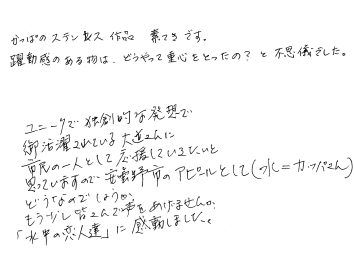 かっぱのステンレス作品 素てきです。
躍動感のある物は、どうやって重心をとったの？と不思儀でした。
ユニークで独創的な発想で
御活躍されている大道さんに
市民の一人として応援していきたいと
思っていますので安曇野市のアピールとして(水＝カッパさん)
どうなのでしょうか
もう少し皆さんで声をあげませんか。
「水中の恋人達」に感動しました。